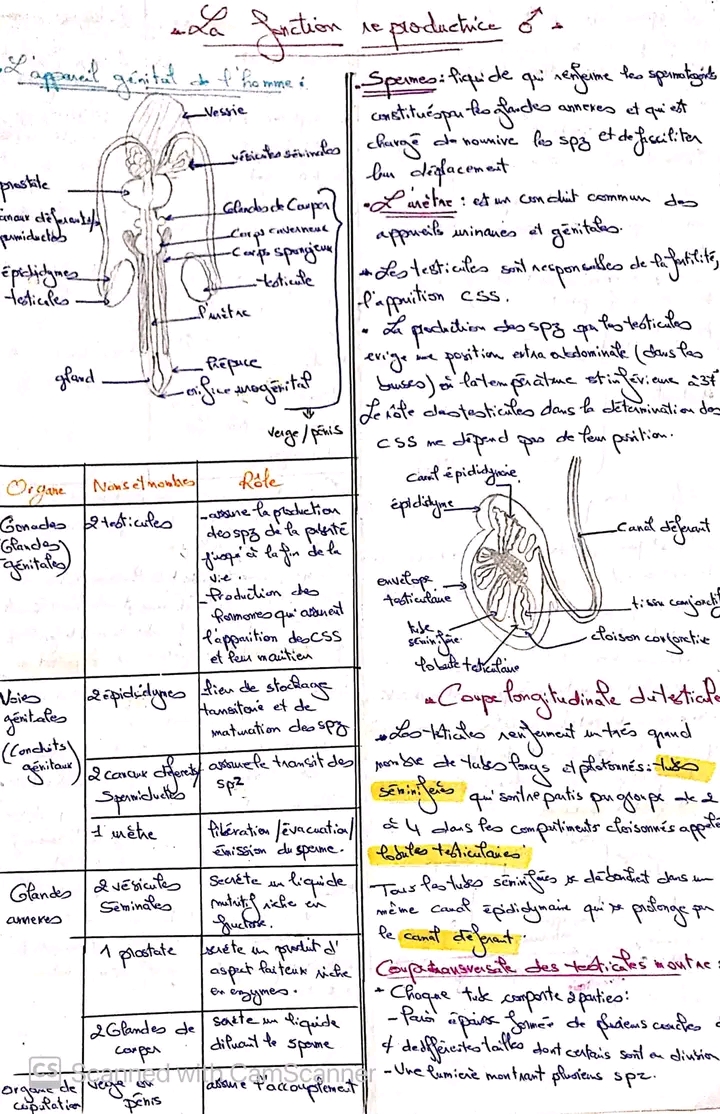 La fonction reproductrice ♂
L'appareil génital de l'homme :
Vessie
vésicules séminales
prostate
Glandes de Cowper
canaux déférents/
spermiductes
Corps caverneux
Corps spongieux
épididymes
testicules
testicule
l'urètre
Prépuce
gland
orifice urogénital
verge/pénis
Organe
Noms et nombres
Rôle
Gonades
(Glandes
génitales)
2 testicules
- assure la production
des spz de la puberté
jusqu'à la fin de la
vie.
- Production des
hormones qui assurent
l'apparition des CSS
et leur maintien
Voies
génitales
(Conduits
génitaux)
2 épididymes
lieu de stockage
transitoire et de
maturation des spz
2 canaux déferents/
spermiductes
assure le transit des
spz
1 urètre
libération/évacuation/
émission du sperme.
Glandes
annexes
2 vésicules
Séminales
Secrète un liquide
nutritif riche en
fructose.
1 prostate
secrète un produit d'
aspect laiteux riche
en enzymes.
2 Glandes de
cowper
secrète un liquide
diluant le sperme
organe de
copulation
verge ou
pénis
assure l'accouplement
Spermes : liquide qui renferme les spermatozoïdes
constitués par les glandes annexes et qui est
chargé de nourrire les spz et de faciliter
leur déplacement
L'urètre : est un conduit commun des
appareils urinaires et génitales.
Les testicules sont responsables de la fertilité,
l'apparition CSS.
La production des spz par les testicules
exige une position extra abdominale (dans les
bourses) où la température est inférieure à 37°
Le rôle des testicules dans la détermination des
CSS ne dépend pas de leur position.
Canal épididymaire
épididyme
Canal déférent
envelope
testiculaire
tissu conjonctif
tube
séminifère
cloison conjonctive
lobule testiculaire
Coupe longitudinale du testicule
Les testicules renferment un très grand
nombre de tubes longs et plotonnés : tubes
séminifères qui sont repartis par groupe de 2
à 4 dans les compartiments cloisonnés appelés
lobules testiculaires
Tous les tubes séminifères débouchent dans un
même canal épididymaire qui se prolonge par
le canal déferent.
Coupe transversale des testicules montre :
Chaque tube comporte 2 parties :
- Paroi épaisse formée de plusieurs couches
de différentes tailles dont certains sont en division
- Une lumière montrant plusieurs spz.
CS Scanned with CamScanner